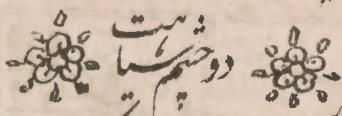 دو چشم سیاهت